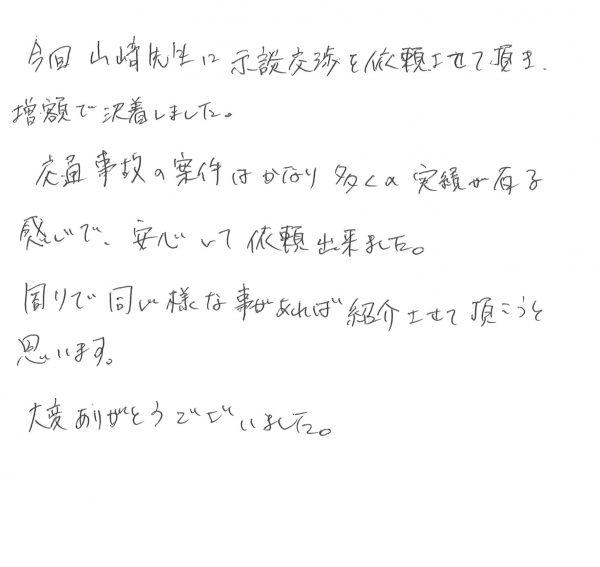 今回 山崎先生に示談交渉を依頼させて頂き、
増額で決着しました。
交通事故の案件はかなり多くの実績が有る
感じで、安心して依頼出来ました。
周りで同じ様な事があれば紹介させて頂こうと
思います。
大変ありがとうございました。